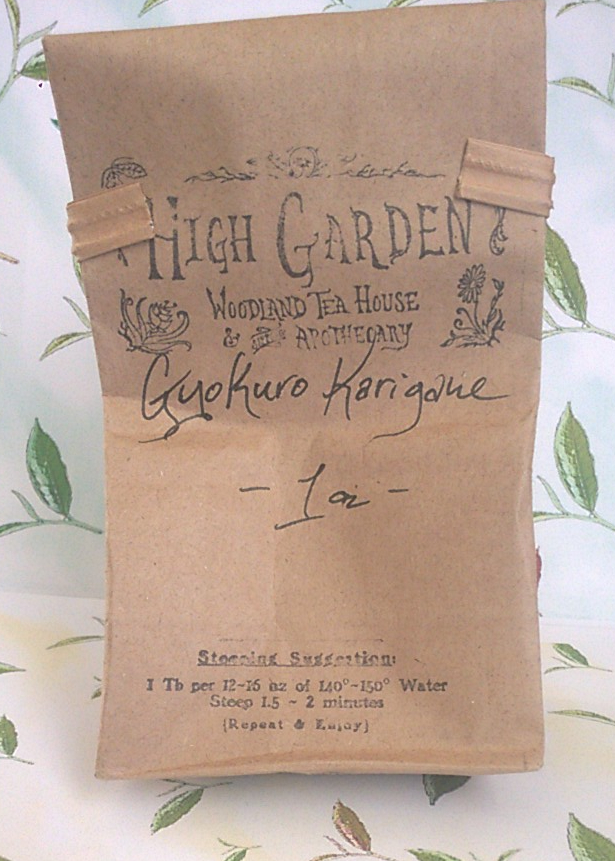 HIGH GARDEN
WOODLAND TEA HOUSE
& APOTHECARY
Gyokuro Karigane
- 1 oz -
Steeping Suggestion:
1 Tb per 12~16 oz of 140°~150° Water
Steep 1.5 ~ 2 minutes
{Repeat & Enjoy}